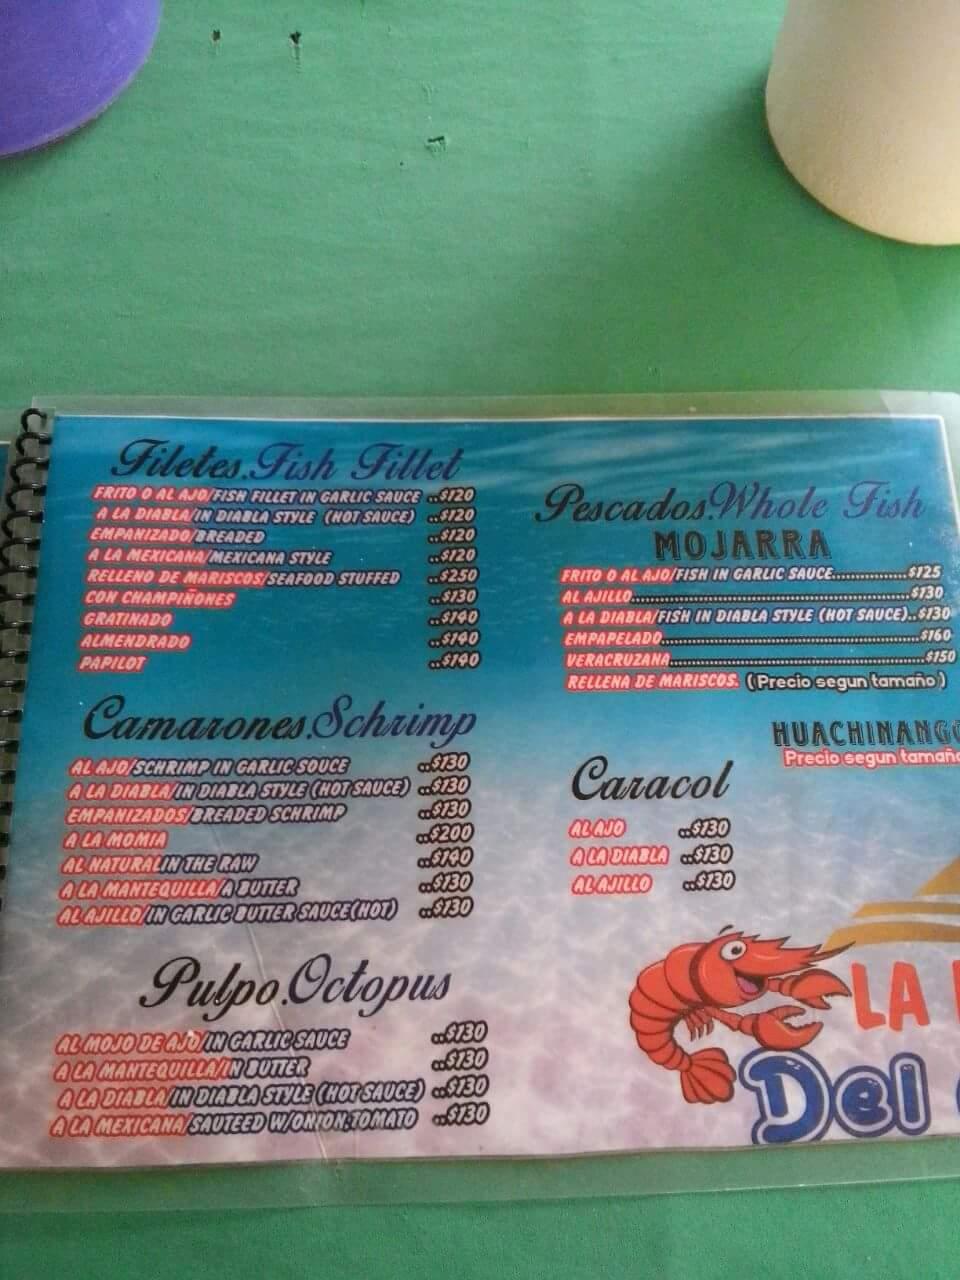 Filetes.Fish Fillet
FRITO O AL AJO/FISH FILLET IN GARLIC SAUCE ..$120
A LA DIABLA/IN DIABLA STYLE (HOT SAUCE) ..$120
EMPANIZADO/BREADED ..$120
A LA MEXICANA/MEXICANA STYLE ..$120
RELLENO DE MARISCOS/SEAFOOD STUFFED ..$250
CON CHAMPIÑONES ..$130
GRATINADO ..$140
ALMENDRADO ..$140
PAPILOT ..$140
Camarones.Schrimp
AL AJO/SCHRIMP IN GARLIC SOUCE ..$130
A LA DIABLA/IN DIABLA STYLE (HOT SAUCE) ..$130
EMPANIZADOS/BREADED SCHRIMP ..$130
A LA MOMIA ..$200
AL NATURAL IN THE RAW ..$140
A LA MANTEQUILLA/A BUTTER ..$130
AL AJILLO/IN GARLIC BUTTER SAUCE(HOT) ..$130
Pulpo.Octopus
AL MOJO DE AJO/IN GARLIC SAUCE ..$130
A LA MANTEQUILLA/IN BUTTER ..$130
A LA DIABLA/IN DIABLA STYLE (HOT SAUCE) ..$130
A LA MEXICANA/SAUTEED W/ONION,TOMATO ..$130
Pescados.Whole Fish
MOJARRA
FRITO O AL AJO/FISH IN GARLIC SAUCE................$125
AL AJILLO................$130
A LA DIABLA/FISH IN DIABLA STYLE (HOT SAUCE)..$130
EMPAPELADO................$160
VERACRUZANA................$150
RELLENA DE MARISCOS. (Precio segun tamaño)
HUACHINANGO
Precio segun tamaño
Caracol
AL AJO ..$130
A LA DIABLA ..$130
AL AJILLO ..$130
LA
Del